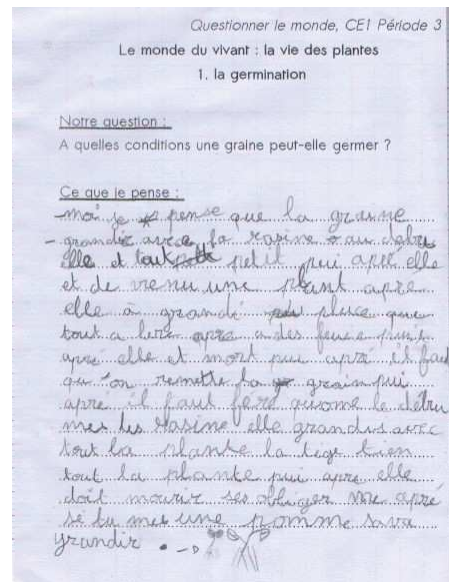 Questionner le monde, CE1 Période 3
Le monde du vivant : la vie des plantes
1. la germination
Notre question :
A quelles conditions une graine peut-elle germer ?
Ce que je pense :
- moi je pense que la graine
- grandir avec la rasine au debu
elle et tout petit pui apré elle
et de venu une plant apre
elle à grandi plus que
tout a apre a des puis
apré elle et mort pui apré il faut
qu'on remette la grain pui
apré il faut fere come le débu
mes les rasine elle grandis avec
tout la plante la tige bien
tout la plante pui apre elle
doit mourir ses obliger me apré
se tu mes une pomme sava
grandir.